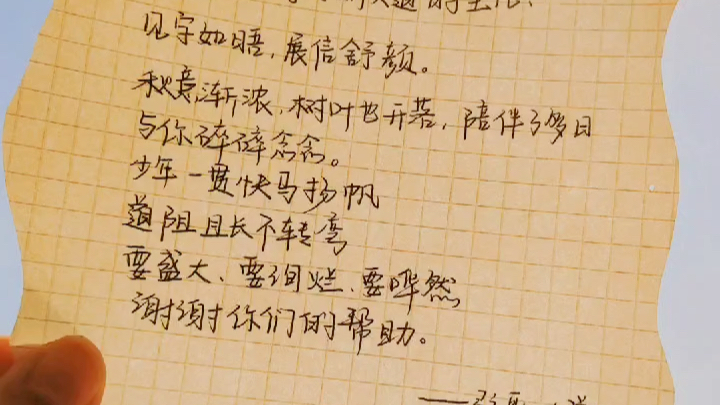 见字如晤，展信舒颜。
秋意渐浓，树叶也开落，陪伴了多日
与你碎碎念念。
少年一贯快马扬帆
道阻且长不转弯
要盛大、要绚烂、要哗然
谢谢你们的帮助。